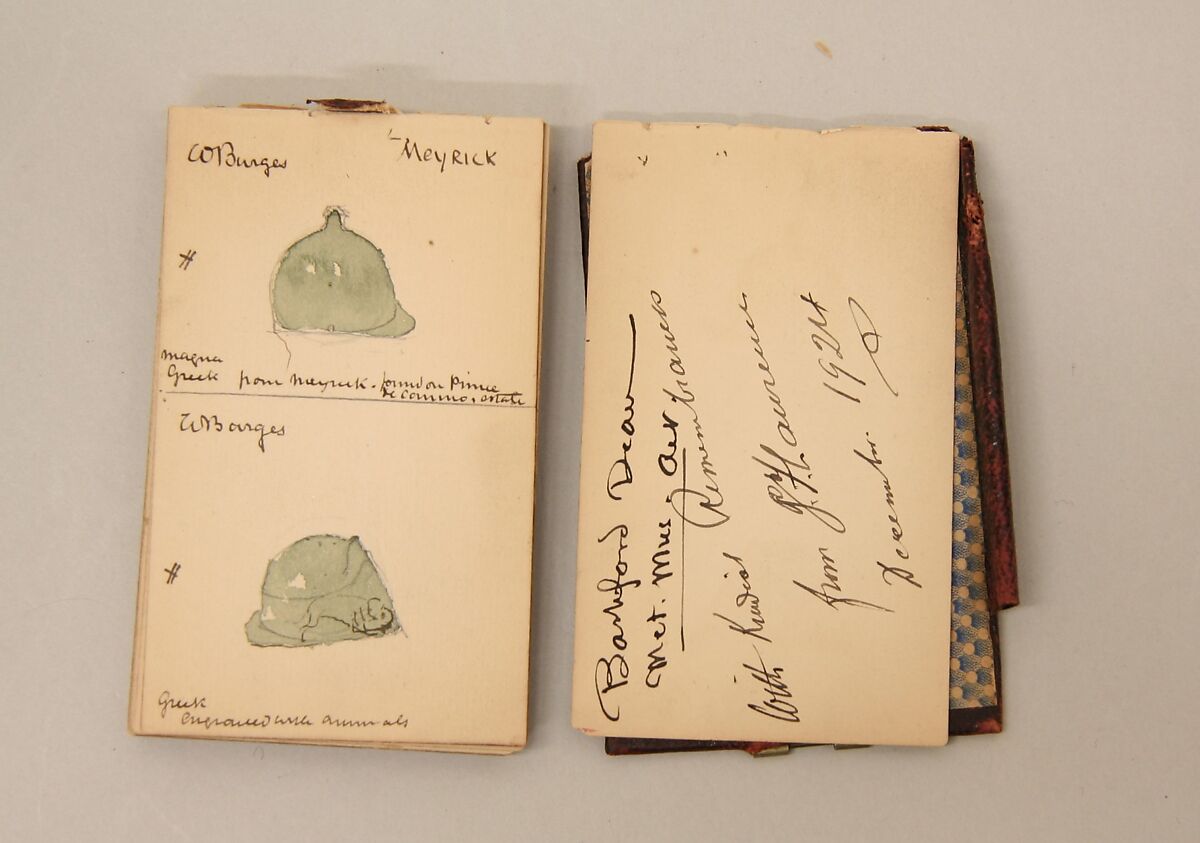 WBurges
Meyrick
#
magna
Greek from Meyrick. found on Prince
de Canino, estate
WBurges
#
Greek
engraved with animals
Bashford Dean
Met. Mus. Art
With Kindest Remembrances
from G.F. Laurence
December. 1924